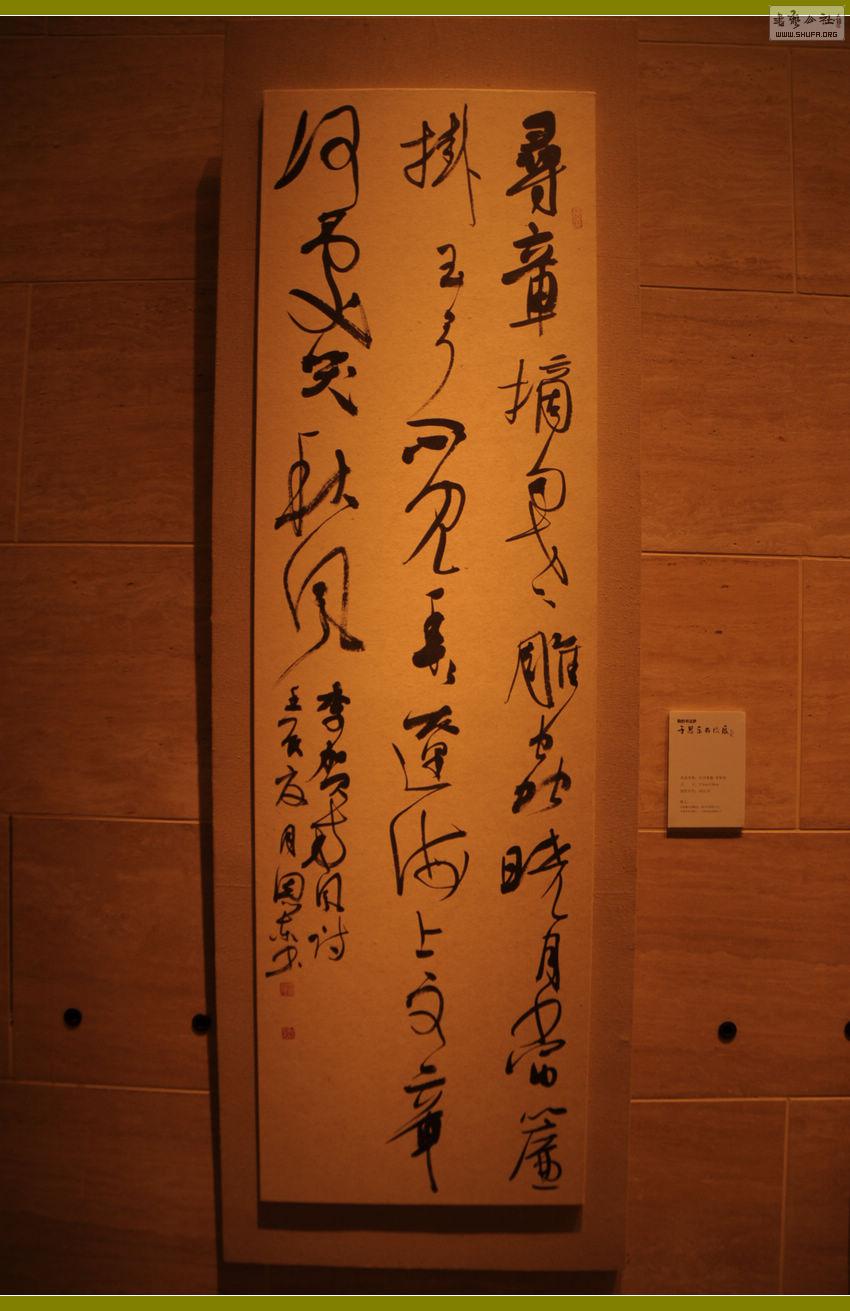 尋章摘句老雕蟲曉月當簾
掛玉弓不見年年遼海上文章
何處哭秋風
李賀南園詩
壬辰夏月恩東書
书艺公社
WWW.SHUFA.ORG